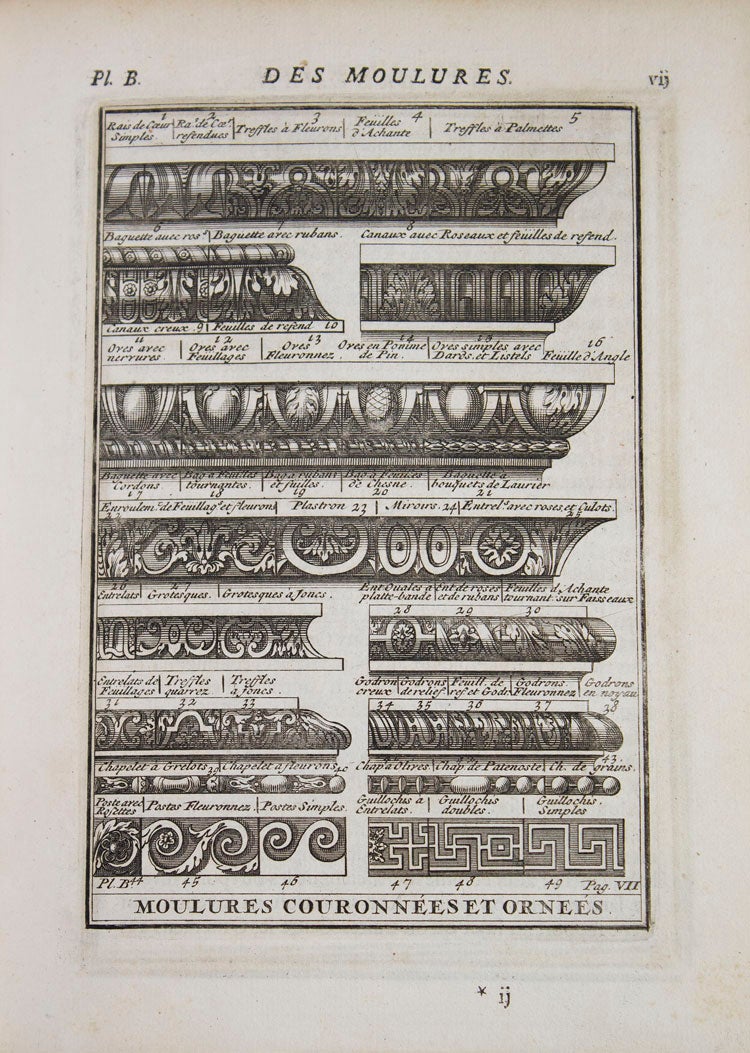 Pl. B. DES MOULURES. vij
1 2 3 4 5
Rais de Cœur Ra.s de Cœ.r Treffles à Fleurons Feüilles Treffles à Palmettes
Simples refendues d'Achante
6 7 8
Baguette avec ros.s Baguette avec rubans. Canaux avec Roseaux et feüilles de refend.
Canaux creux. 9 Feuilles de refend 10
11 12 13 14 15 16
Oves avec Oves avec Oves Oves en Pomme Oves simples avec
nervures Feuillages Fleuronnez de Pin. Dards, et Listels Feüille d'Angle
Baguette avec Bag à Feuilles Bag à rubans Bag à feuilles Baguette à
Cordons. tournantes. et fuilles. de Chesne. bouquets de Laurier
17 18 19 20 21
Enroulem.s de Feuillag.s et fleurons Plastron 23 Miroirs. 24 Entrel.s avec roses, et Culots.
22 25
26 27
Entrelats Grotesques. Grotesques a Joncs. Ent Ovales à Ent de roses Feuilles d'Achante
platte-bande et de rubans tournant sur Faisseaux
28 29 30
Entrelats de Treffles Treffles Godron Godrons Feuill. de Godrons Godrons
Feuillages quarrez a Joncs. creux de relief ref et Godr. Fleuronnez en noyau
31 32 33 34 35 36 37 38
Chapelet à Grelots Chapelet a fleurons Chap à Olives Chap de Patenoste Ch. de grains.
43
Poste avec Postes Fleuronnez. Postes Simples. Guillochis à Guillochis Guillochis.
Rosettes Entrelats. doubles. Simples
Pl. B 44 45 46 47 48 49 Pag. VII
MOULURES COURONNÉES ET ORNEÉS.
* ij